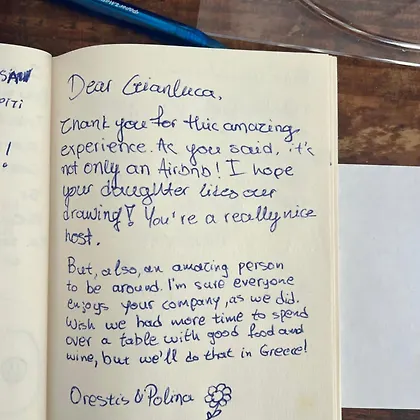 SAN
PITI
!
!
Dear Gianluca,
Thank you for this amazing
experience. As you said, it's
not only an Airbnb! I hope
your daughter likes our
drawing! You're a really nice
host.
But, also, an amazing person
to be around. I'm sure everyone
enjoys your company, as we did.
Wish we had more time to spend
over a table with good food and
wine, but we'll do that in Greece!
Orestis & Polina